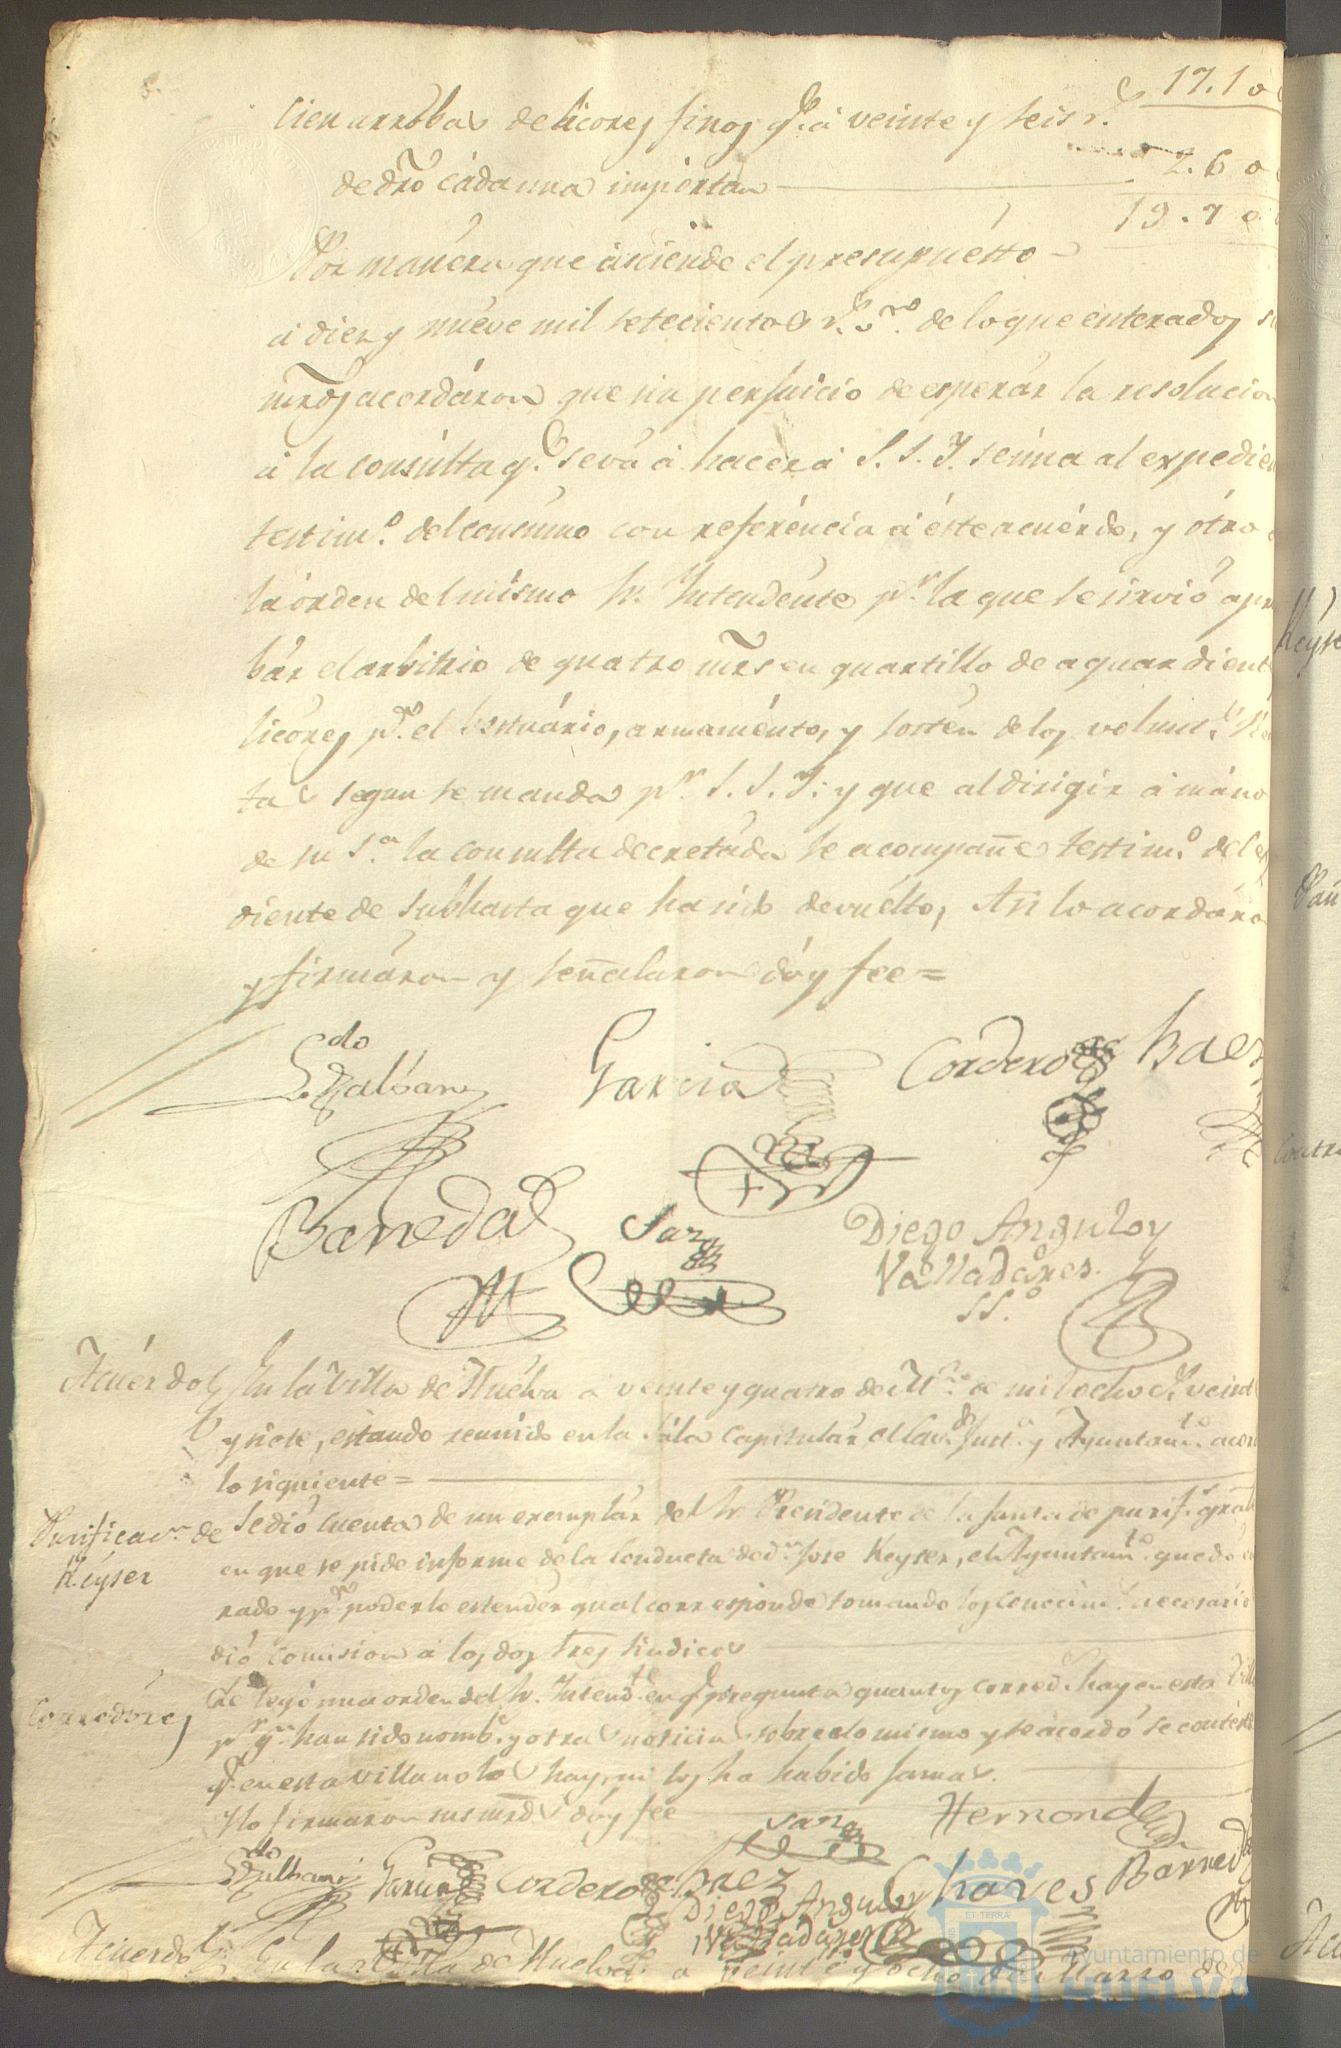 17.10
Cien arrobas de licores finos q.e á veinte y seis r.s
2.60
de dro cada una importan
19.70
Por manera que asciende el presupuesto
á diez y nueve mil setecientos r.s v.on de lo que enterados
mrds acordáron que sin perjuicio de esperár la resolucion
á la consúlta q.e se vá á hacer á S. S. Y. se úna al expedien
testim.o del consumo con referéncia á éste acuérdo, y ótro
la órden del mismo Sr. Intendénte p.r la que se sirvió apro
bár el arbitrio de quatro mrs en quartillo de aguardient
licóres p.a el bestuário, armaménto, y sostén de los volunt.s
tas segun se manda p.r S. S. Y. y que al dirigir á máno
de su S.a la consulta decretáda se acompañe testim.o del
diente de subhasta que ha sido devuélto, Asi lo acordáro
y firmáron y señalaron dóy fee=
L.do Zalbans
Garcia
Cordero
Baez
Barreda
Saz
Diego Angulo y
Valladáres
SS.o
Acuérdo
En la Villa de Huélva á veinte y quatro de M.zo de mil ocho c.s veint
y siete, estando reunido en la Sála Capitulár el Cav.do Just.a y Ayuntam.to acor
lo siguiente=
Purificac.n de Kéyser
Se dió Cuenta de un exemplár del Sr. Presidente de la Junta de purif.n
en que se pide informe de la Conducta de d.n Jose Keyser, el Ayuntam.to quedó
rado y p.a poderlo estendér qual corresponde tomando los Conocim.s necesário
dió Comision á los dos Sres Sindicos
Corredóres
Se leyó una orden del Sr. Intend.te en q.e pregunta quantos corred.s hay en esta Vill
p.r q.n han sido nomb.s y otras noticias sobre lo mismo y se acordó se contést
q.e en esta villa no los hay, ni los ha habido jamas.
Y lo firmaron sus mrds dóy fee
Saz
Hernandez
L.do Zalbans
Garcia
Cordero
Baez
Diego Angulo y
Valladares
Chaves
Barreda
Acuerdo
En la Villa de Huelva á veinte y ocho de Marzo de
ET TERRÆ
Ayuntamiento de
HUELVA
Contra